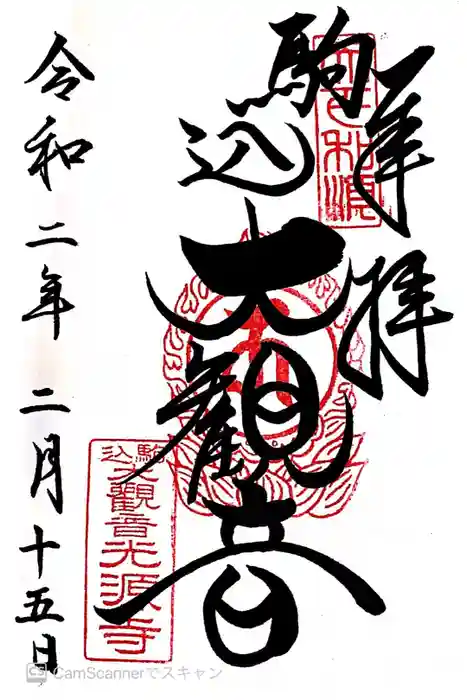 奉拝
駒込
大観音
令和二年二月十五日
駒込大觀音光源寺
CamScannerでスキャン